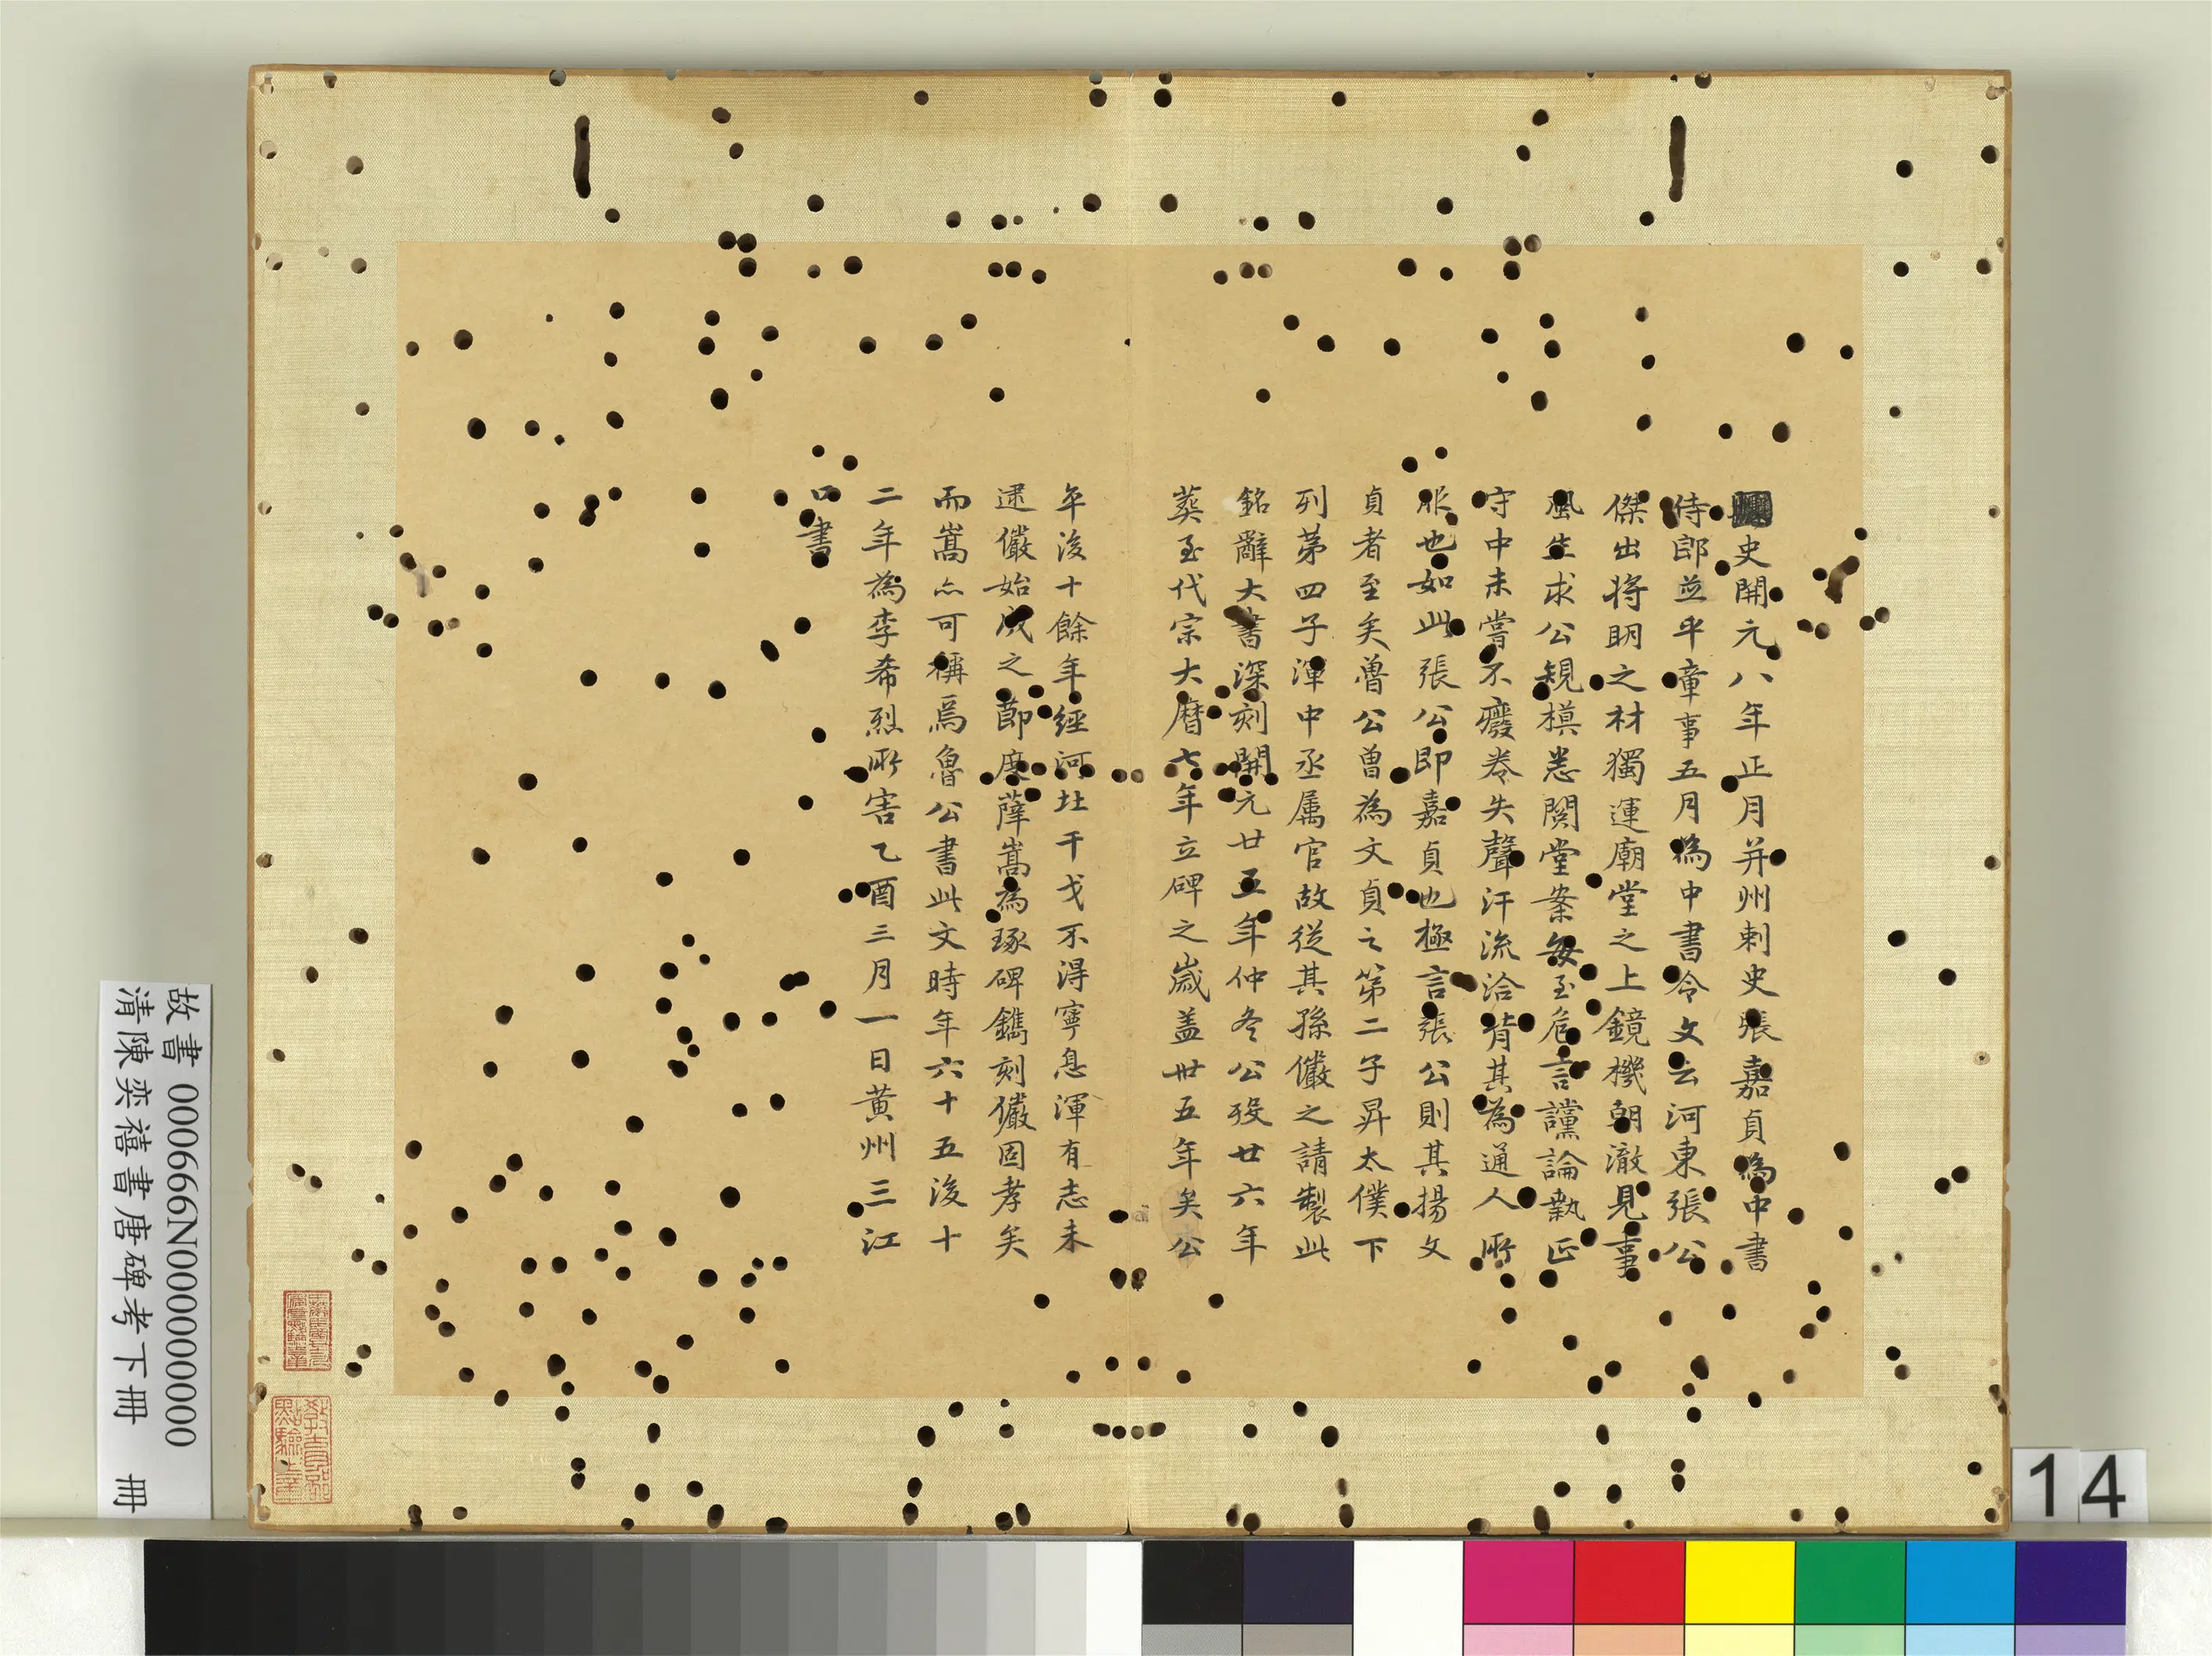 史開元八年正月并州刺史張嘉貞為中書
侍郎並平章事五月為中書令文云河東張公
傑出將明之材獨運廟堂之上鏡機朝澈見事
風生求公規模悉閱堂案每至危言讜論執正
守中未嘗不癈卷失聲汗流洽背其為通人所
服也如此張公即嘉貞也極言張公則其揚文
貞者至矣魯公曽為文貞之第二子昇太僕下
列第四子渾中丞属官故從其孫儼之請製此
銘辭大書深刻開元廿五年仲冬公歿廿六年
葬至代宗大曆七年立碑之歲盖卅五年矣公
卒後十餘年經河北干戈不得寧息渾有志未
逮儼始成之節度薛嵩為琢碑鐫刻儼固孝矣
而嵩亦可稱焉魯公書此文時年六十五後十
二年為李希烈所害乙酉三月一日黃州三江
口書
故書 000666N000000000
清陳奕禧書唐碑考下冊 冊
14
教育部點驗之章